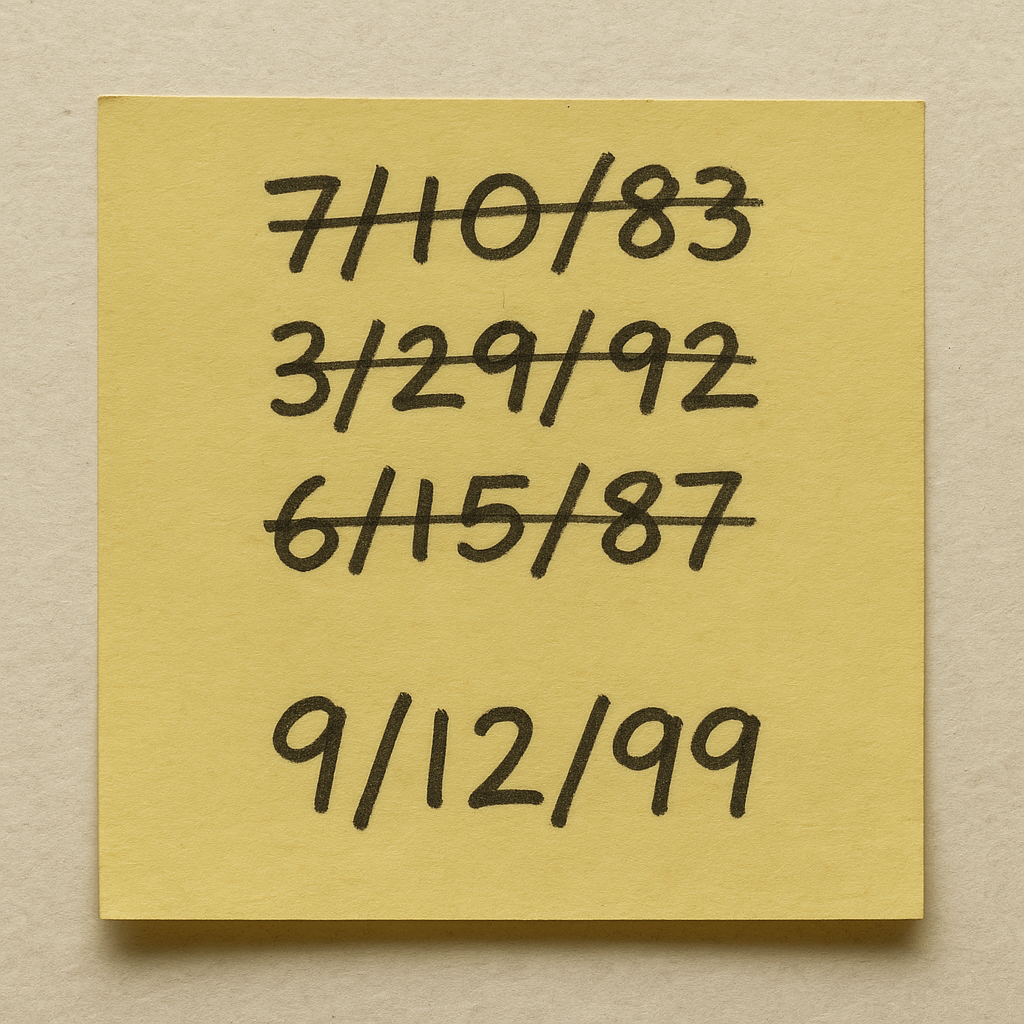 7/10/83
3/29/92
6/15/87
9/12/99